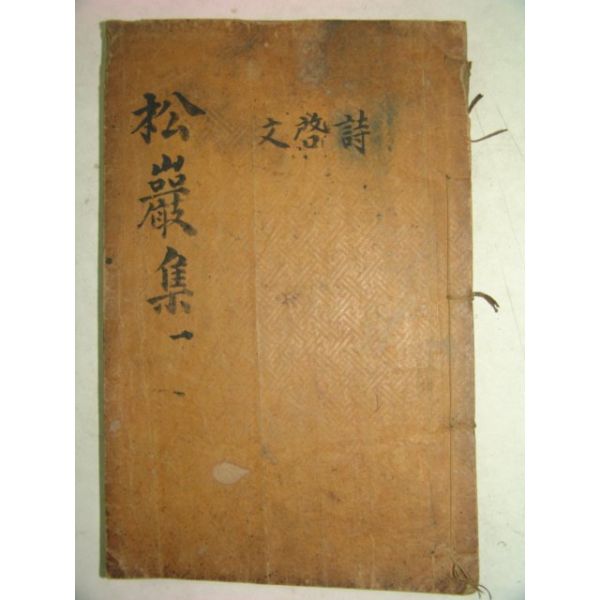 詩啓文
松巖集一